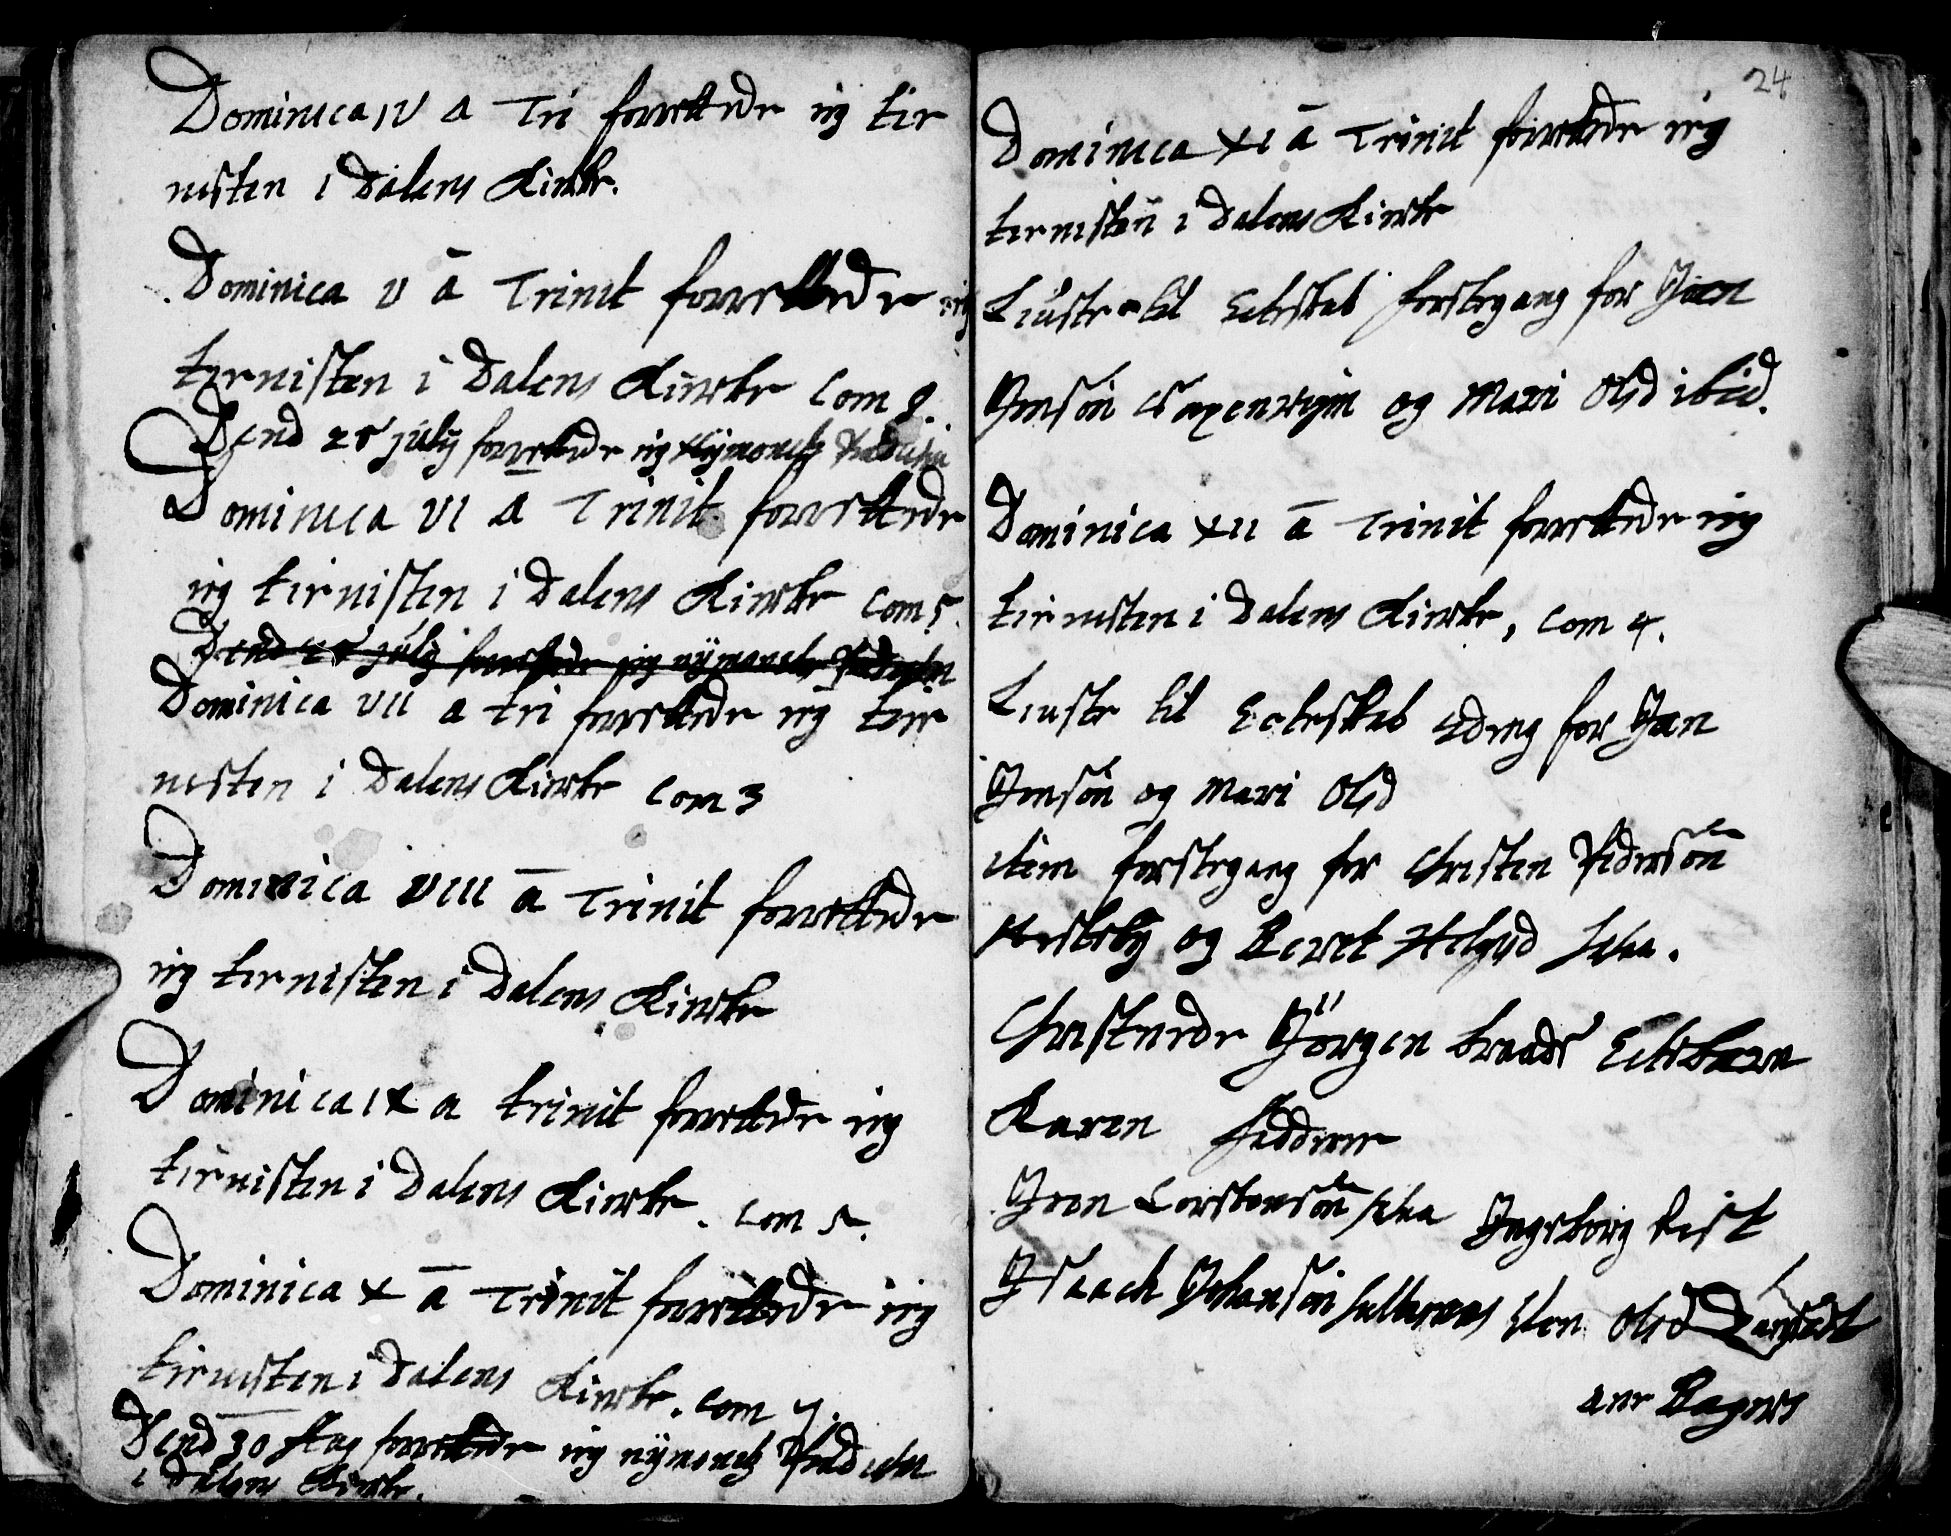 Dominica IV a Tri forrettede ieg tie
nisten i Dalens Kircke.
Dominica V ā Trinit forrettede ieg
tienisten i Dalens Kircke Com 8.
Dend 25 july forrettede ieg nÿmonetz
Dominica VI ā Trinit forrettede
ieg tienisten i Dalens Kircke Com 5.
Dend 25 july forrettede ieg nÿmonetz
Dominica VII a tri forrettede ieg tie
nesten i Dalens Kircke Com 3
Dominica VIII ā Trinit forrettede
ieg tienisten i Dalens Kircke
Dominica IX a trinit forrettede ieg
tienisten i Dalens Kircke. Com 5.
Dominica X ā Trinit forrettede ieg
tienisten i Dalens Kircke. Com 7.
Dend 30 Aug forrettede ieg nÿmonetz
i Dalens Kircke.
24
Dominica XI ā Trinit forrettede ieg
tienisten i Dalens Kircke
Liuste til Ecteskab forstegang for Joen
Jonsön og Mari Olsd ibid.
Dominica XII ā Trinit forrettede ieg
tienisten i Dalens Kircke, Com 4.
Liuste til Ecteskab for Jon
Jonsön og Mari Olsd
item forstegang for Christen Pedersön
og Beret
Christnede Jörgen Ectebarn
Karen fadderne
Joen Torstensön Ingeborg
Isaack Johansön Elen Olsd